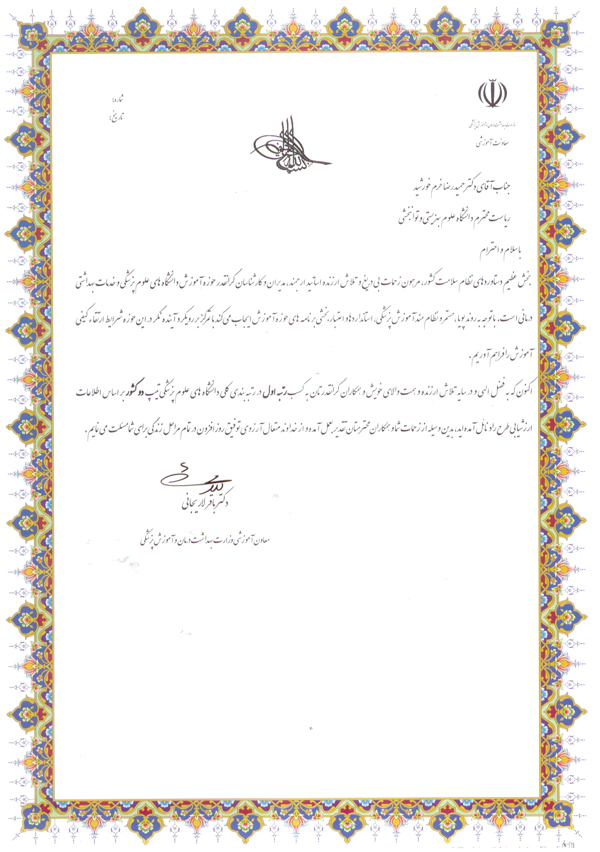 شماره:
تاریخ:
وزارت بهداشت، درمان و آموزش پزشکی
معاونت آموزشی
جناب آقای دکتر حمیدرضا خرم خورشید
ریاست محترم دانشگاه علوم بهزیستی و توانبخشی
با سلام و احترام
بخش عظیم دستاوردهای نظام سلامت کشور، مرهون زحمات بی دریغ و تلاش ارزنده اساتید ارجمند، مدیران و کارشناسان گرانقدر حوزه آموزش دانشگاه های علوم پزشکی و خدمات بهداشتی
درمانی است. با توجه به روند پویا، مستمر و نظام مند آموزش پزشکی، استانداردها و اعتباربخشی برنامه های حوزه آموزش ایجاب می کند با تمرکز بر رویکرد آینده نگر در این حوزه شرایط ارتقاء کیفی
آموزش را فراهم آوریم.
اکنون که به فضل الهی و در سایه تلاش ارزنده و همت والای خویش و همکاران گرانقدرتان به کسب رتبه اول در رتبه بندی کلی دانشگاه های علوم پزشکی تیپ دو کشور بر اساس اطلاعات
ارزشیابی طرح راد نائل آمده اید، بدین وسیله از زحمات شما و همکاران محترمتان تقدیر بعمل آمده و از خداوند متعال آرزوی توفیق روز افزون در تمام مراحل زندگی برای شما مسئلت می نمایم.
دکتر باقر لاریجانی
معاون آموزشی وزارت بهداشت درمان و آموزش پزشکی